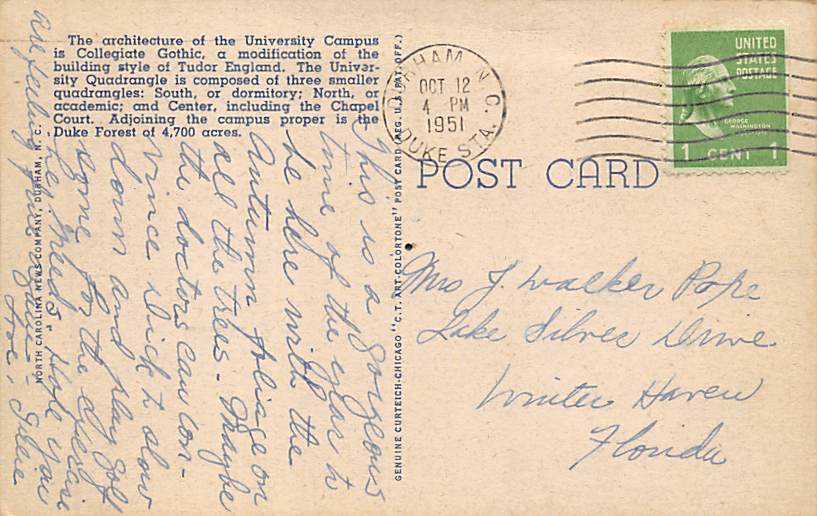 The architecture of the University Campus
is Collegiate Gothic, a modification of the
building style of Tudor England. The Univer-
sity Quadrangle is composed of three smaller
quadrangles: South, or dormitory; North, or
academic; and Center, including the Chapel
Court. Adjoining the campus proper is the
Duke Forest of 4,700 acres.
This is a gorgeous
time of the year to
be here with the
Autumn foliage on
all the trees - Maybe
the doctors can con-
vince Dick to slow
down and play golf
some for the exercise
he needs. Hope you
are feeling fine again -
Love, Irene
NORTH CAROLINA NEWS COMPANY, DURHAM, N. C.
GENUINE CURTEICH-CHICAGO "C.T. ART-COLORTONE" POST CARD (REG. U.S. PAT. OFF.)
DURHAM, N.C.
OCT 12
4 PM
1951
DUKE STA.
UNITED
STATES
POSTAGE
GEORGE
WASHINGTON
1 CENT 1
POST CARD
Mrs J. Walker Pope
Lake Silver Drive
Winter Haven
Florida